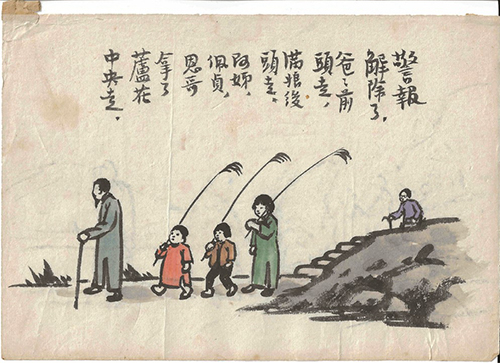 警報
解除了，
爸〻前
頭走，
滿娘後
頭走，
阿姊、
佩貞、
恩哥
拿了
蘆花
中央走。